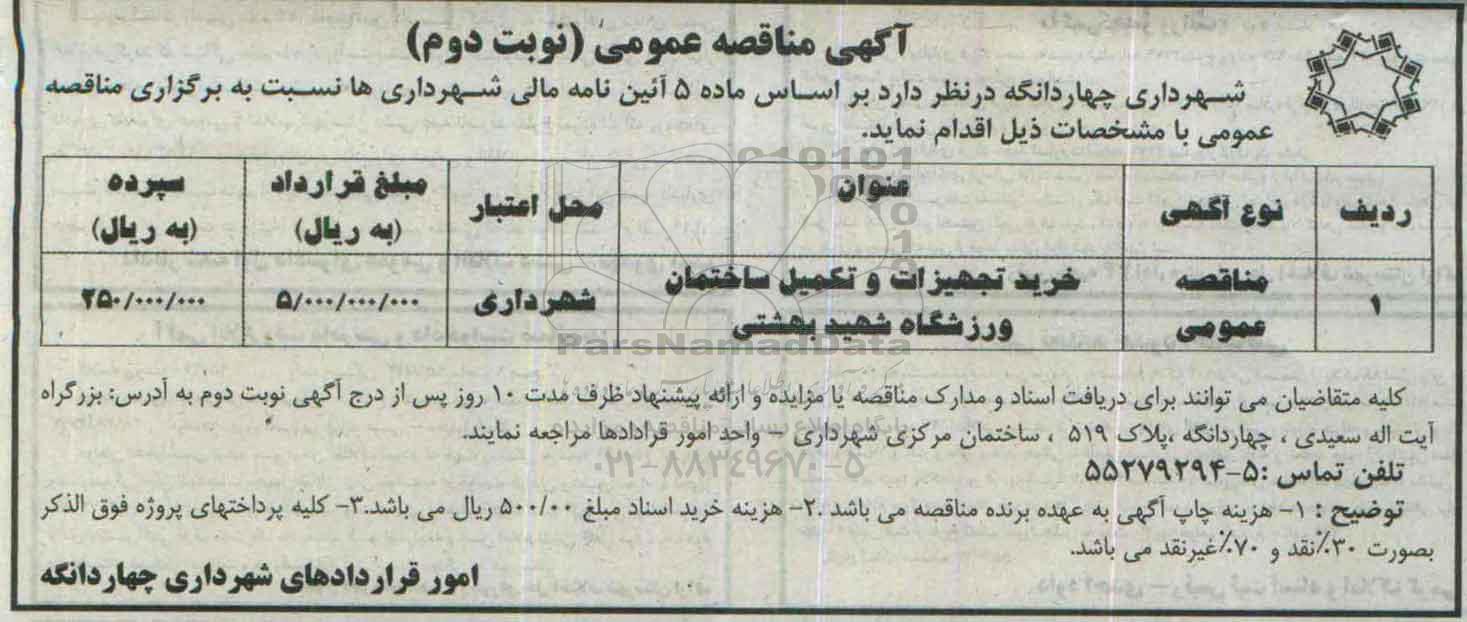 آگهی مناقصه عمومی (نوبت دوم)
شهرداری چهاردانگه درنظر دارد بر اساس ماده ۵ آئین نامه مالی شهرداری ها نسبت به برگزاری مناقصه
عمومی با مشخصات ذیل اقدام نماید.
ردیف نوع آگهی عنوان محل اعتبار مبلغ قرارداد (به ریال) سپرده (به ریال)
۱ مناقصه عمومی خرید تجهیزات و تکمیل ساختمان ورزشگاه شهید بهشتی شهرداری ۵/۰۰۰/۰۰۰/۰۰۰ ۲۵۰/۰۰۰/۰۰۰
ParsNamadData
کلیه متقاضیان می توانند برای دریافت اسناد و مدارک مناقصه یا مزایده و ارائه پیشنهاد ظرف مدت ۱۰ روز پس از درج آگهی نوبت دوم به آدرس: بزرگراه
آیت اله سعیدی ، چهاردانگه ،پلاک ۵۱۹ ، ساختمان مرکزی شهرداری – واحد امور قرادادها مراجعه نمایند.
۰۲۱-۸۸۳۴۹۶۷۰-۵
تلفن تماس :۵-۵۵۲۷۹۲۹۴
توضیح : ۱- هزینه چاپ آگهی به عهده برنده مناقصه می باشد .۲- هزینه خرید اسناد مبلغ ۵۰۰/۰۰ ریال می باشد.۳- کلیه پرداختهای پروژه فوق الذکر
بصورت ۳۰٪نقد و ۷۰٪غیرنقد می باشد.
امور قراردادهای شهرداری چهاردانگه